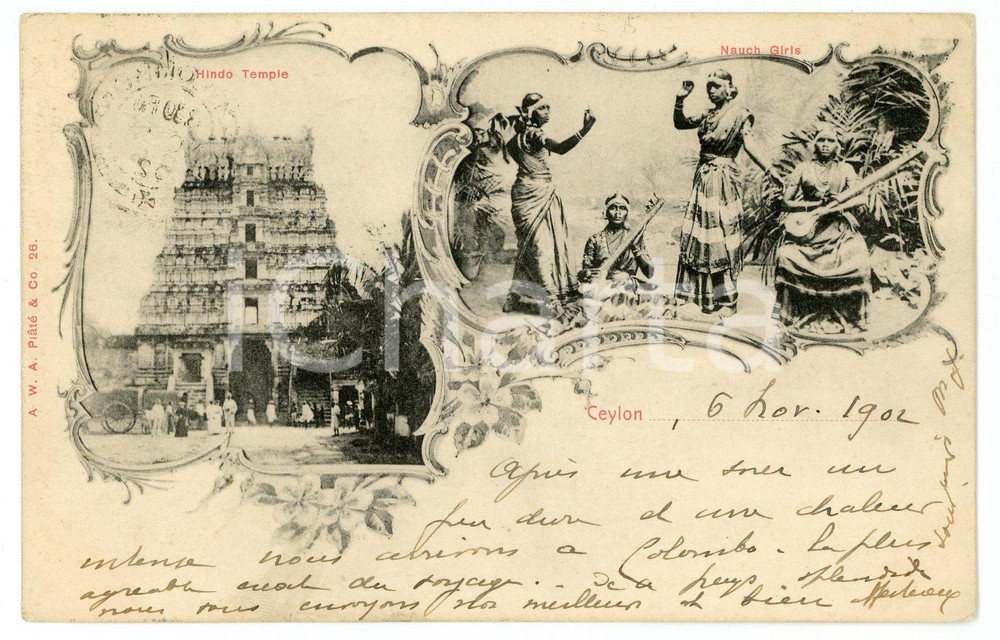 Hindo Temple
Nauch Girls
A. W. A. Plâté & Co. 26.
iCharta
Ceylon, 6 Nov. 1902
Après une mer un
peu dure et une chaleur
intense nous arrivons à Colombo - La plus
agréable escale du voyage. - pays splendide
nous vous envoyons nos meilleurs et bien